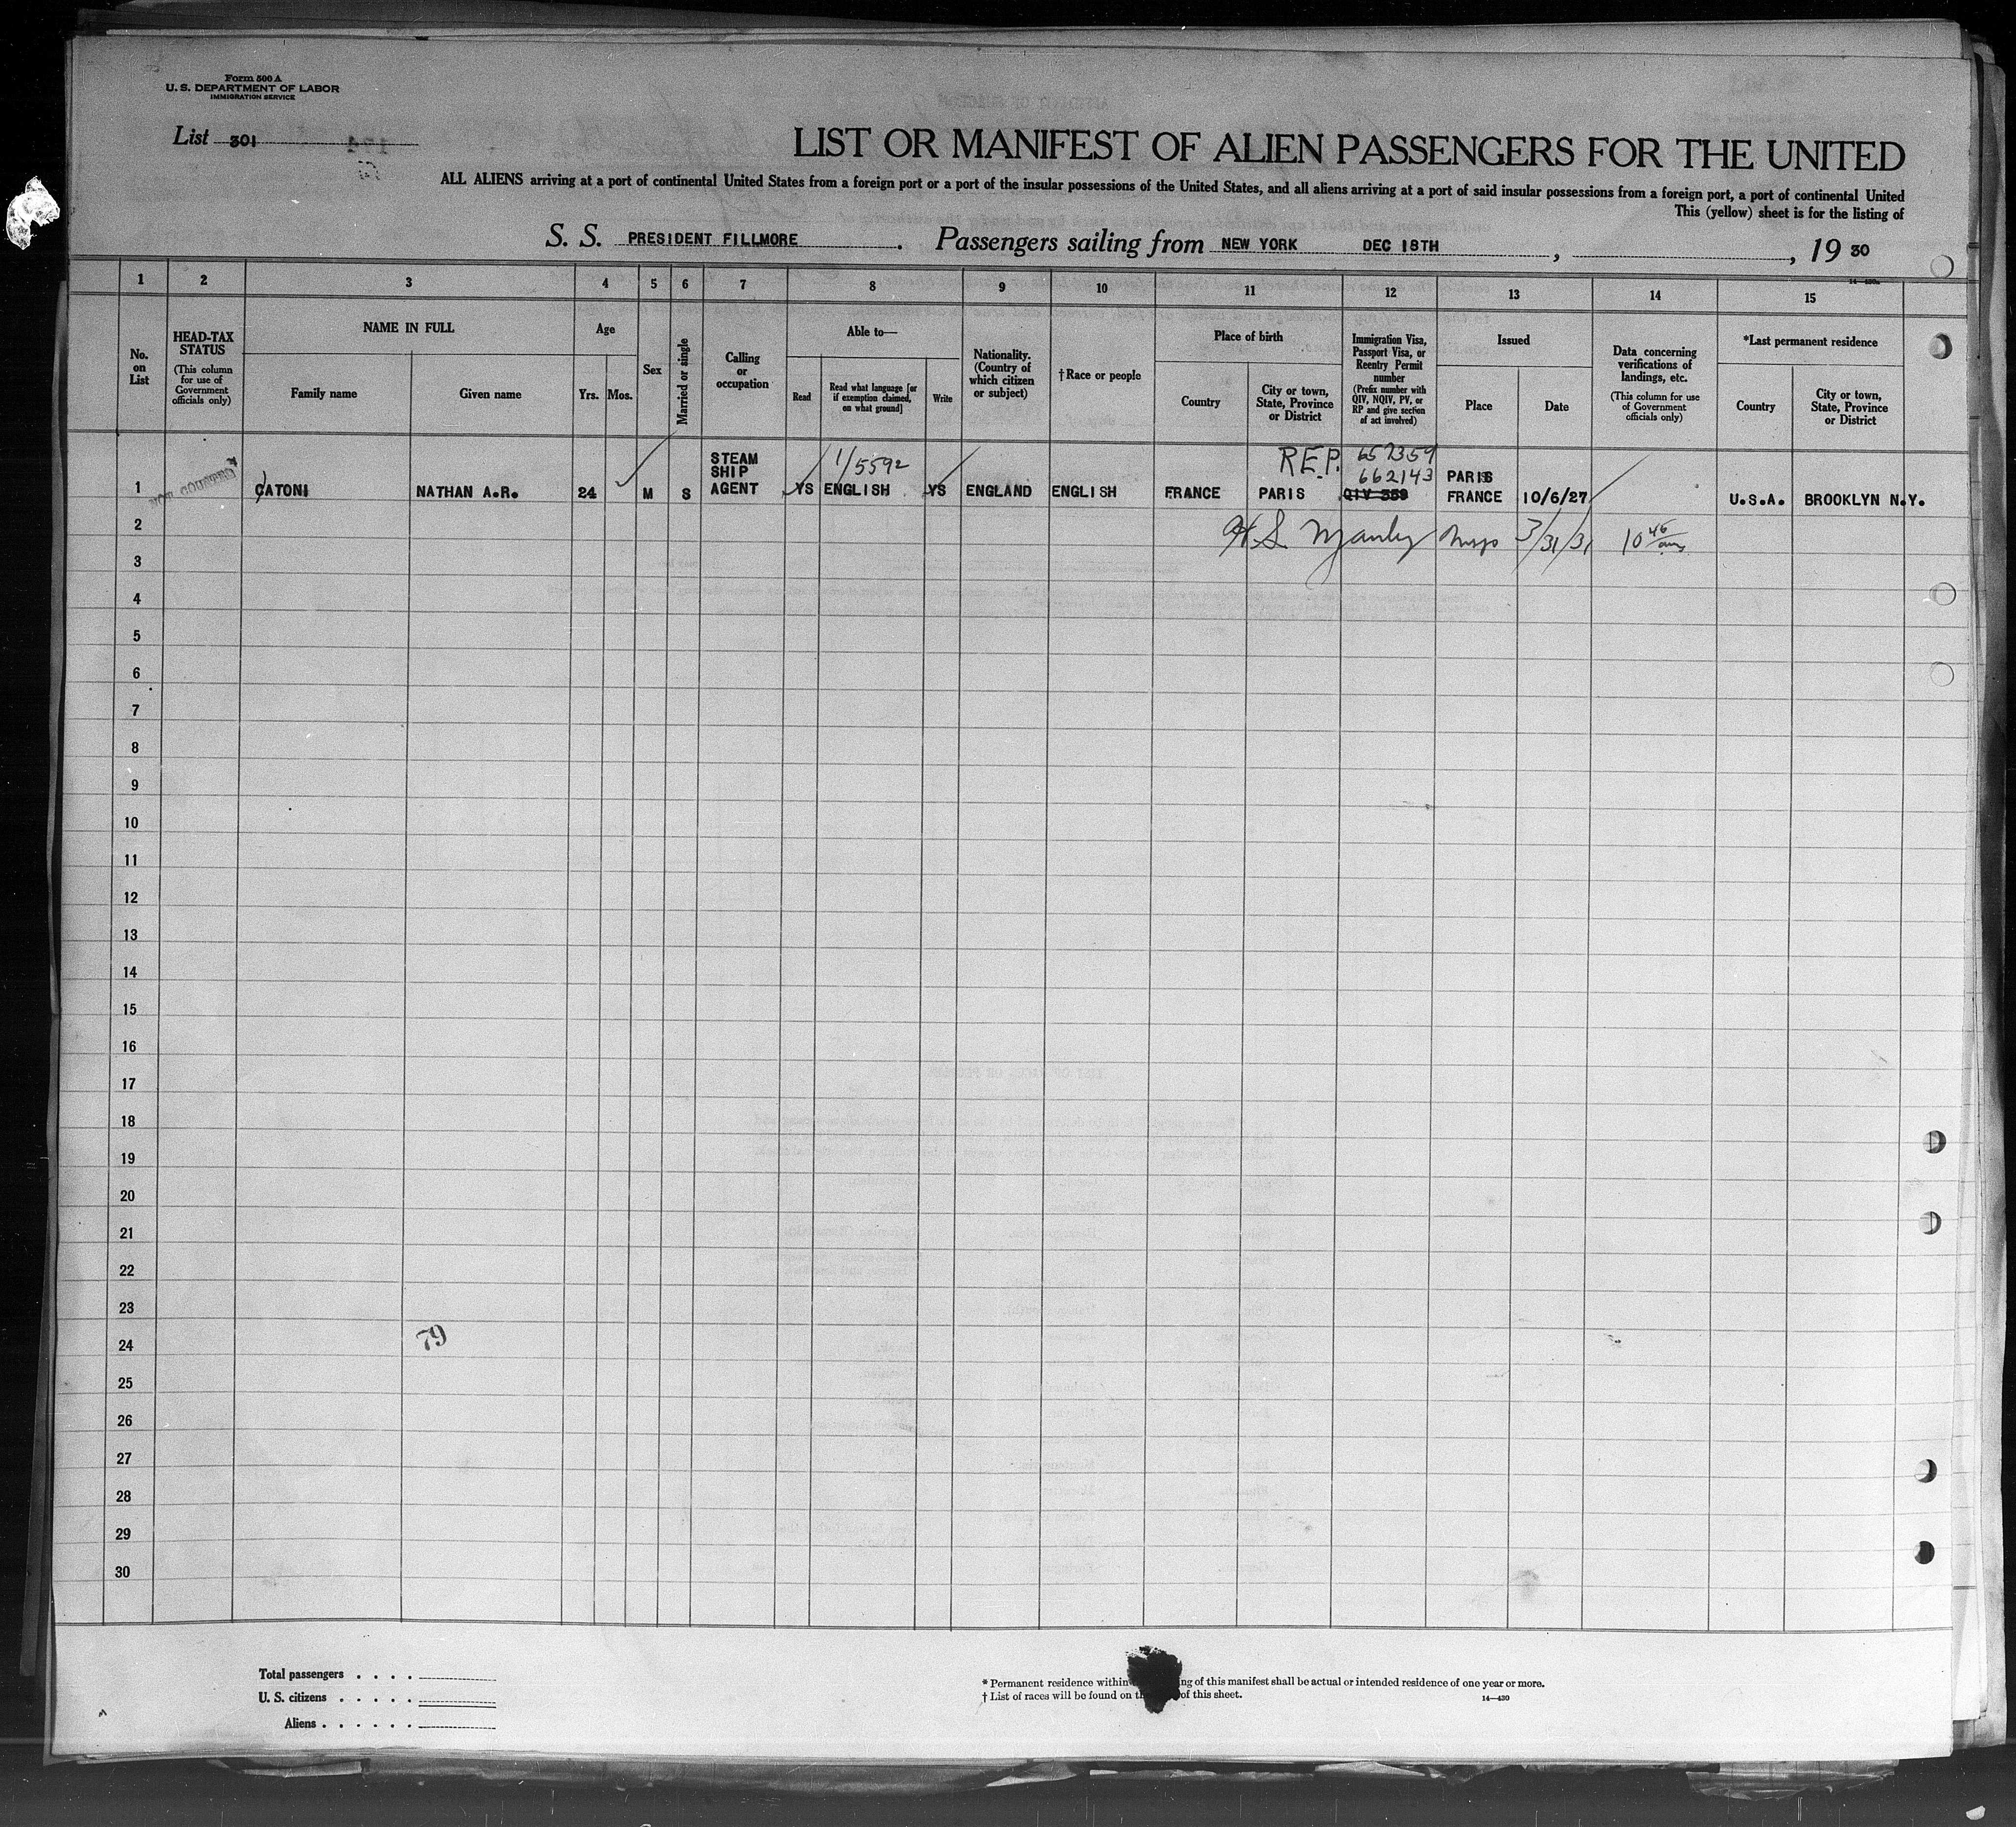 Form 500 A
U. S. DEPARTMENT OF LABOR
IMMIGRATION SERVICE
List 301
LIST OR MANIFEST OF ALIEN PASSENGERS FOR THE UNITED
ALL ALIENS arriving at a port of continental United States from a foreign port or a port of the insular possessions of the United States, and all aliens arriving at a port of said insular possessions from a foreign port, a port of continental United
This (yellow) sheet is for the listing of
S. S. PRESIDENT FILLMORE. Passengers sailing from NEW YORK DEC 18TH, , 19 30
1 2 3 4 5 6 7 8 9 10 11 12 13 14 15
No. on List
HEAD-TAX STATUS (This column for use of Government officials only)
NAME IN FULL
Family name
Given name
Age
Yrs.
Mos.
Sex
Married or single
Calling or occupation
Able to—
Read
Read what language [or if exemption claimed, on what ground]
Write
Nationality. (Country of which citizen or subject)
†Race or people
Place of birth
Country
City or town, State, Province or District
Immigration Visa, Passport Visa, or Reentry Permit number (Prefix number with QIV, NQIV, PV, or RP and give section of act involved)
Issued
Place
Date
Data concerning verifications of landings, etc. (This column for use of Government officials only)
*Last permanent residence
Country
City or town, State, Province or District
1/5592 R.E.P. 657359
662143
NOT COUNTED
1 CATONI NATHAN A.R. 24 M S STEAM SHIP AGENT YS ENGLISH YS ENGLAND ENGLISH FRANCE PARIS QIV 359 PARIS FRANCE 10/6/27 U.S.A. BROOKLYN N.Y.
2 H.S. Manley Insp 3/31/31 10 46 am
3
4
5
6
7
8
9
10
11
12
13
14
15
16
17
18
19
20
21
22
23
79
24
25
26
27
28
29
30
Total passengers . . . .
U. S. citizens . . . . .
Aliens . . . . . .
* Permanent residence within ng of this manifest shall be actual or intended residence of one year or more.
† List of races will be found on th of this sheet.
14—430